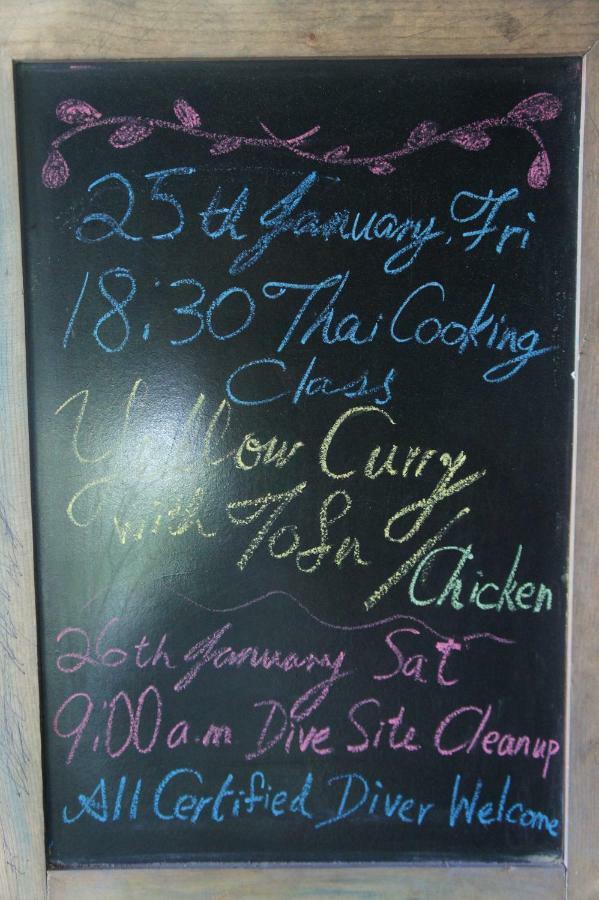 25th January, Fri
18:30 Thai Cooking
Class
Yellow Curry
with Tofu /
Chicken
26th January Sat
9:00 a.m Dive Site Cleanup
All Certified Diver Welcome